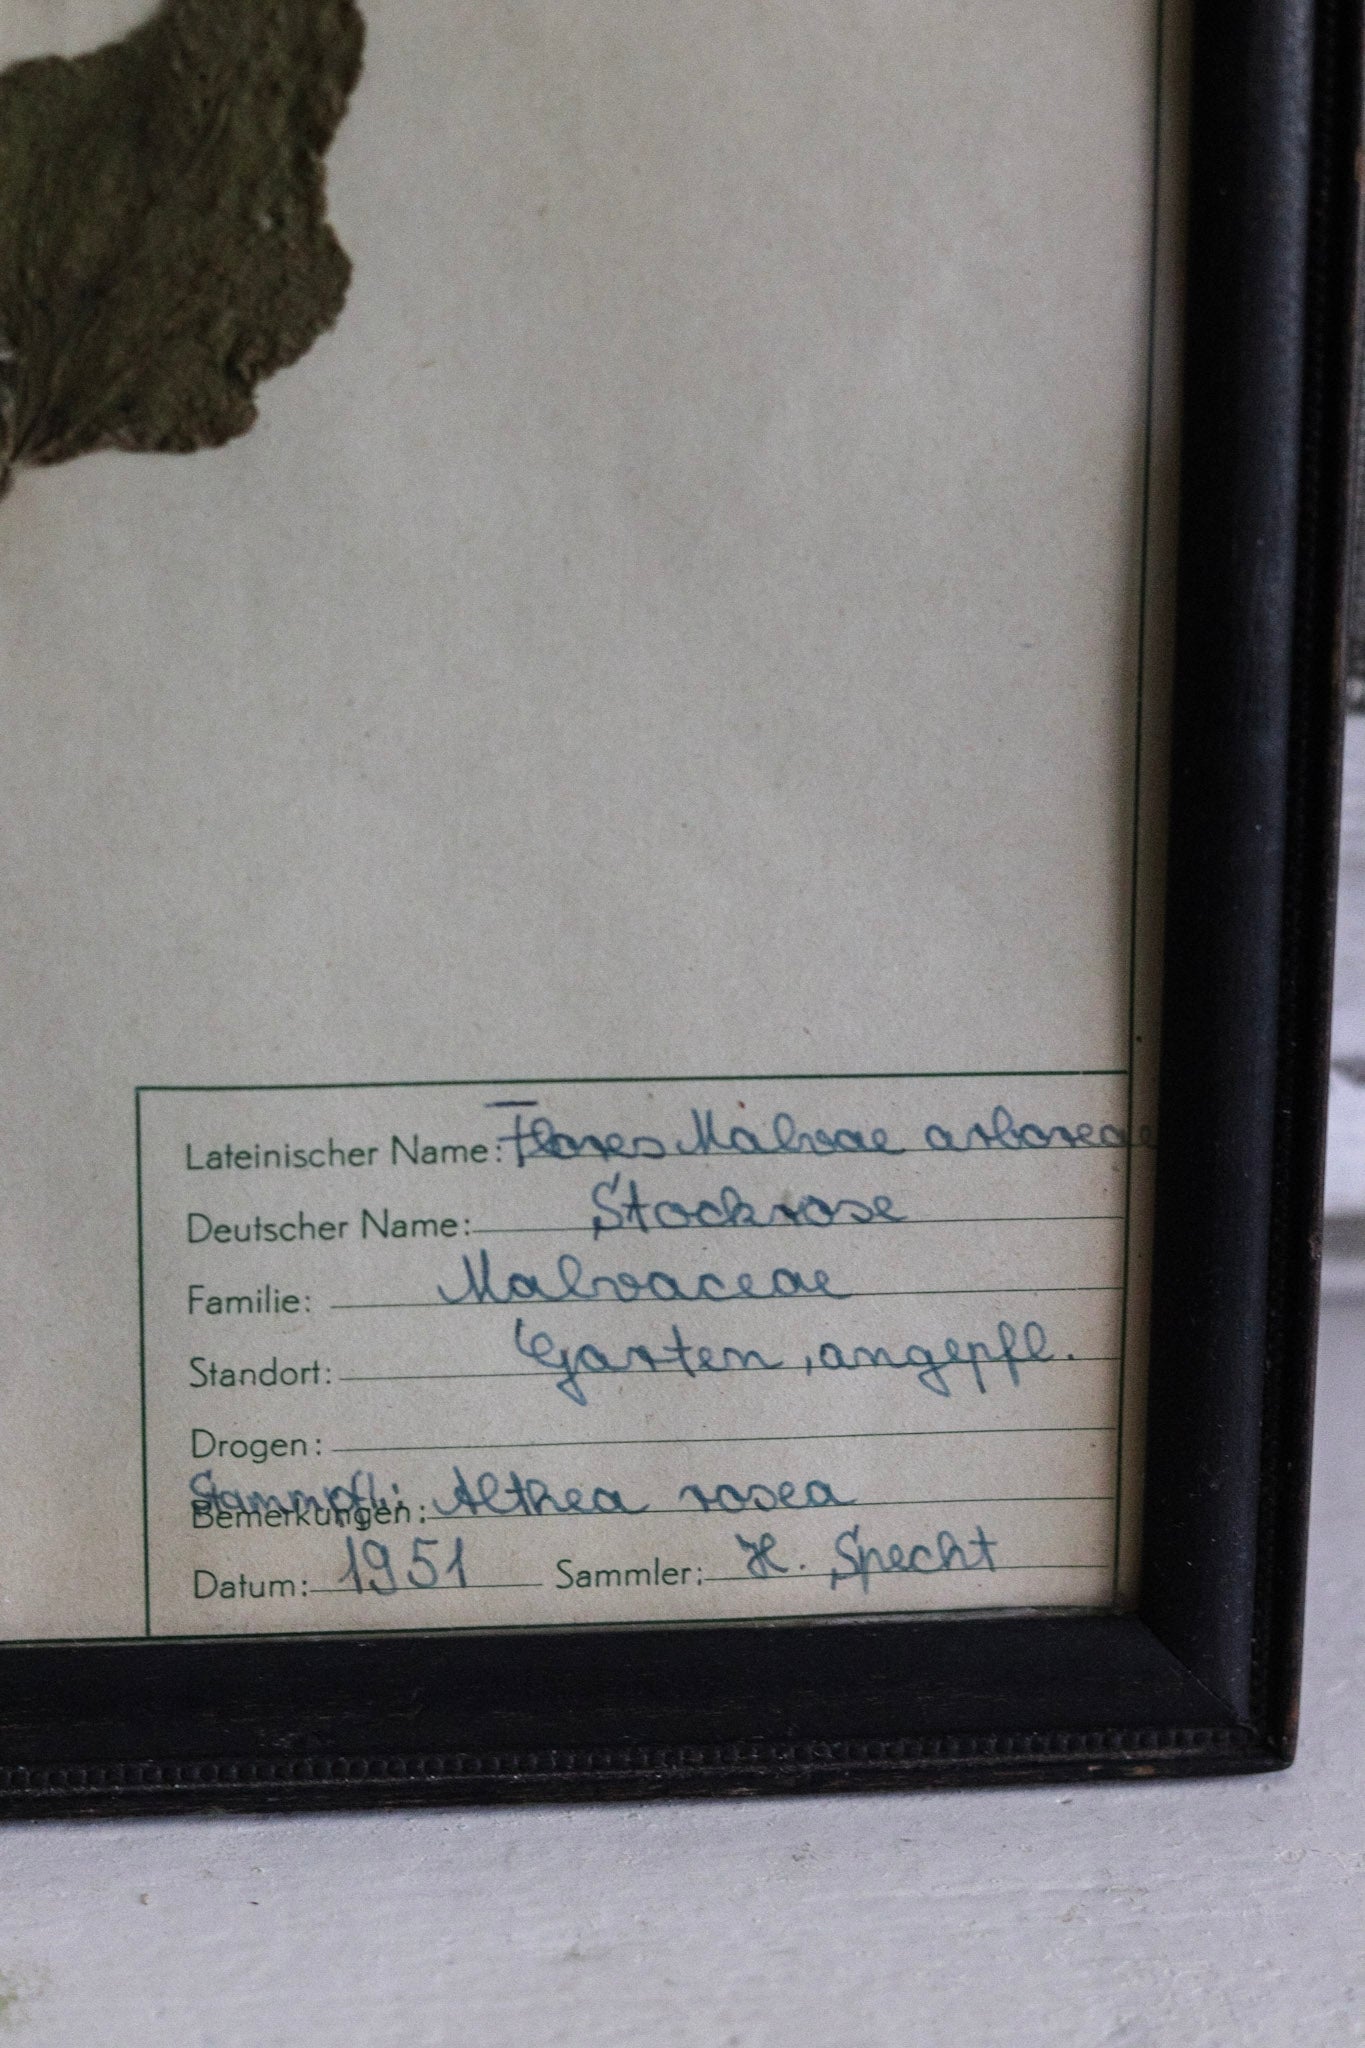 Lateinischer Name: Flores Malvae arboreae
Deutscher Name: Stockrose
Familie: Malvaceae
Standort: Garten, angepfl.
Drogen:
Stammpfl.: Althea rosea
Bemerkungen:
Datum: 1951 Sammler: H. Specht